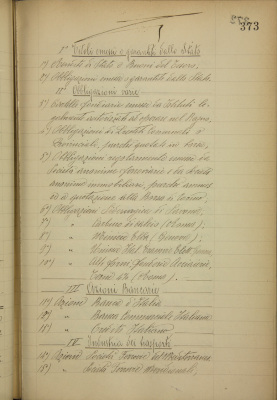 373
I° Titoli emessi e garantiti dallo Stato
1°) Rendita di Stato e Buoni del Tesoro.
2°) Obbligazioni emesse e garantite dallo Stato.
II° Obbligazioni varie
3°) Cartelle fondiarie emesse da Istituti le-
galmente autorizzati ad operare nel Regno.
4°) Obbligazioni di Prestiti Comunali o
Provinciali, purché quotate in borsa;
5°) Obbligazioni regolarmente emesse da
Società anonime ferroviarie e da Società
anonime immobiliari, purché ammes-
se a quotazione delle Borse di
6°) Obbligazioni di Savona;
7°) " Carburo di Calcio (Roma);
8°) " Elba (Genova);
9°) "
10°) " Alti forni, fonderie, Acciaierie,
Terni (Roma).
III° Azioni Bancarie
11°) Azioni Banca d'Italia
12°) " Banca Commerciale Italiana
13°) " Credito Italiano
IV° Industria dei trasporti
14°) Azioni Società Ferrovie del Mediterraneo
15°) " Società Ferrovie Meridionali;